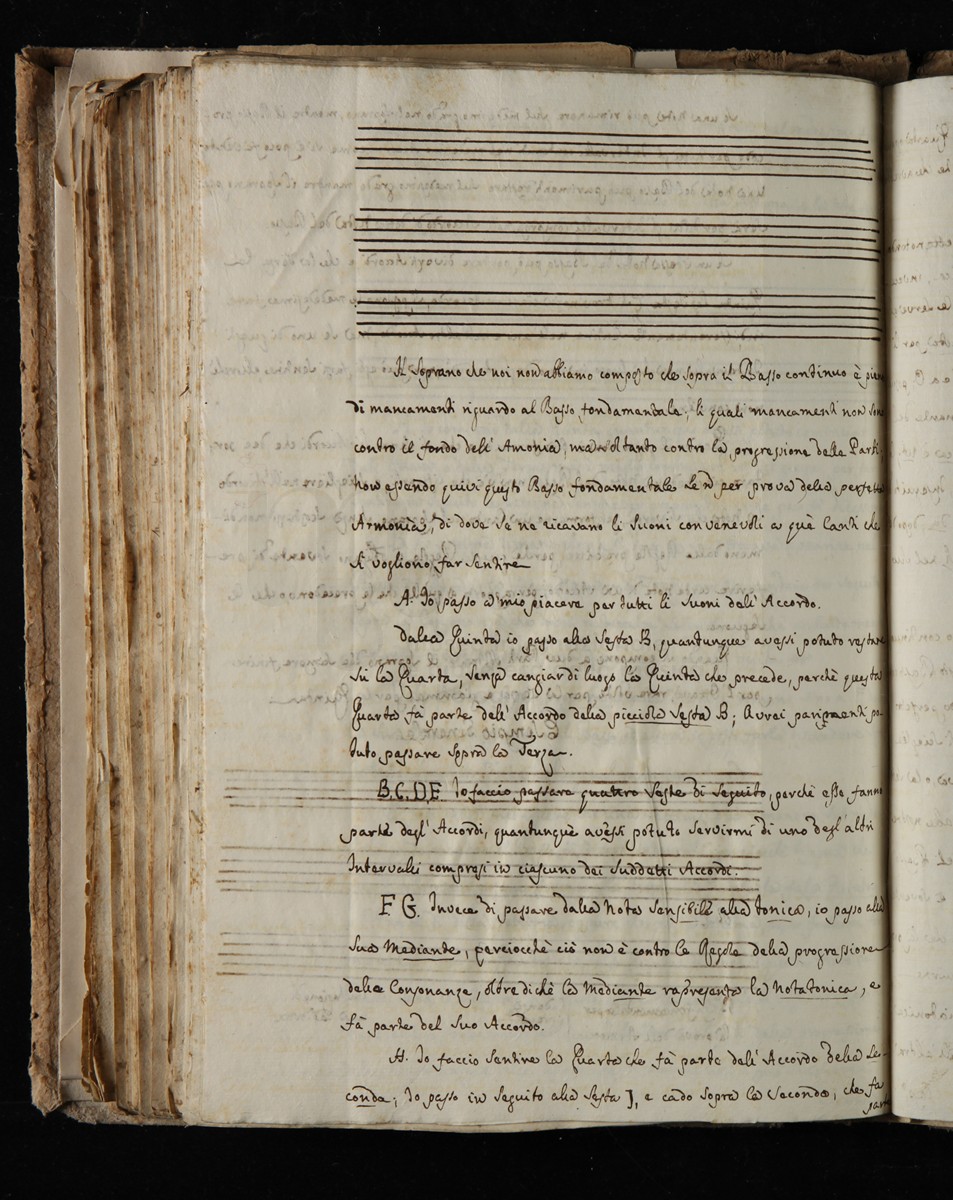 Il Soprano che noi non abbiamo composto che sopra il Basso continuo è pien
di mancamenti riguardo al Basso fondamentale; li quali mancamenti non son
contro il fondo dell' Armonia, ma soltanto contro la progressione delle Parti
non essendo quivi questo Basso fondamentale se ñ per prova della perfetta
Armonia, di dove se ne ricavano li Suoni convenevoli a què Canti che
si vogliono far sentire
A. Io passo à mio piacere per tutti li Suoni dell' Accordo.
Dalla Quinta io passo alla Sesta B, quantunque avessi potuto restare
su la Quarta, senza cangiar di luogo la Quinta che precede, perchè questa
Quarta fà parte dell' Accordo della picciola Sesta B; Avrei parimenti po-
tuto passare sopra la Terza.
B. C. D. E. Io faccio passare quattro Seste di seguito, perchè esse fanno
parte degl' Accordi, quantunquè avèssi potuto servirmi di uno degl' altri
Intervalli compresi in ciascuno dei Suddetti Accordi.
F G. Invece di passare dalla Nota sensibile alla tonica, io passo alla
sua Mediante, perciocchè ciò non è contro le Regole della progressione
delle Consonanze, oltre di chè la Mediante rappresenta la Nota tonica, e
fà parte del suo Accordo.
H. Io faccio sentire la Quarta che fà parte dell' Accordo della Se-
conda; Io passo in seguito alla Sesta J, e cado sopra la Seconda, che fa